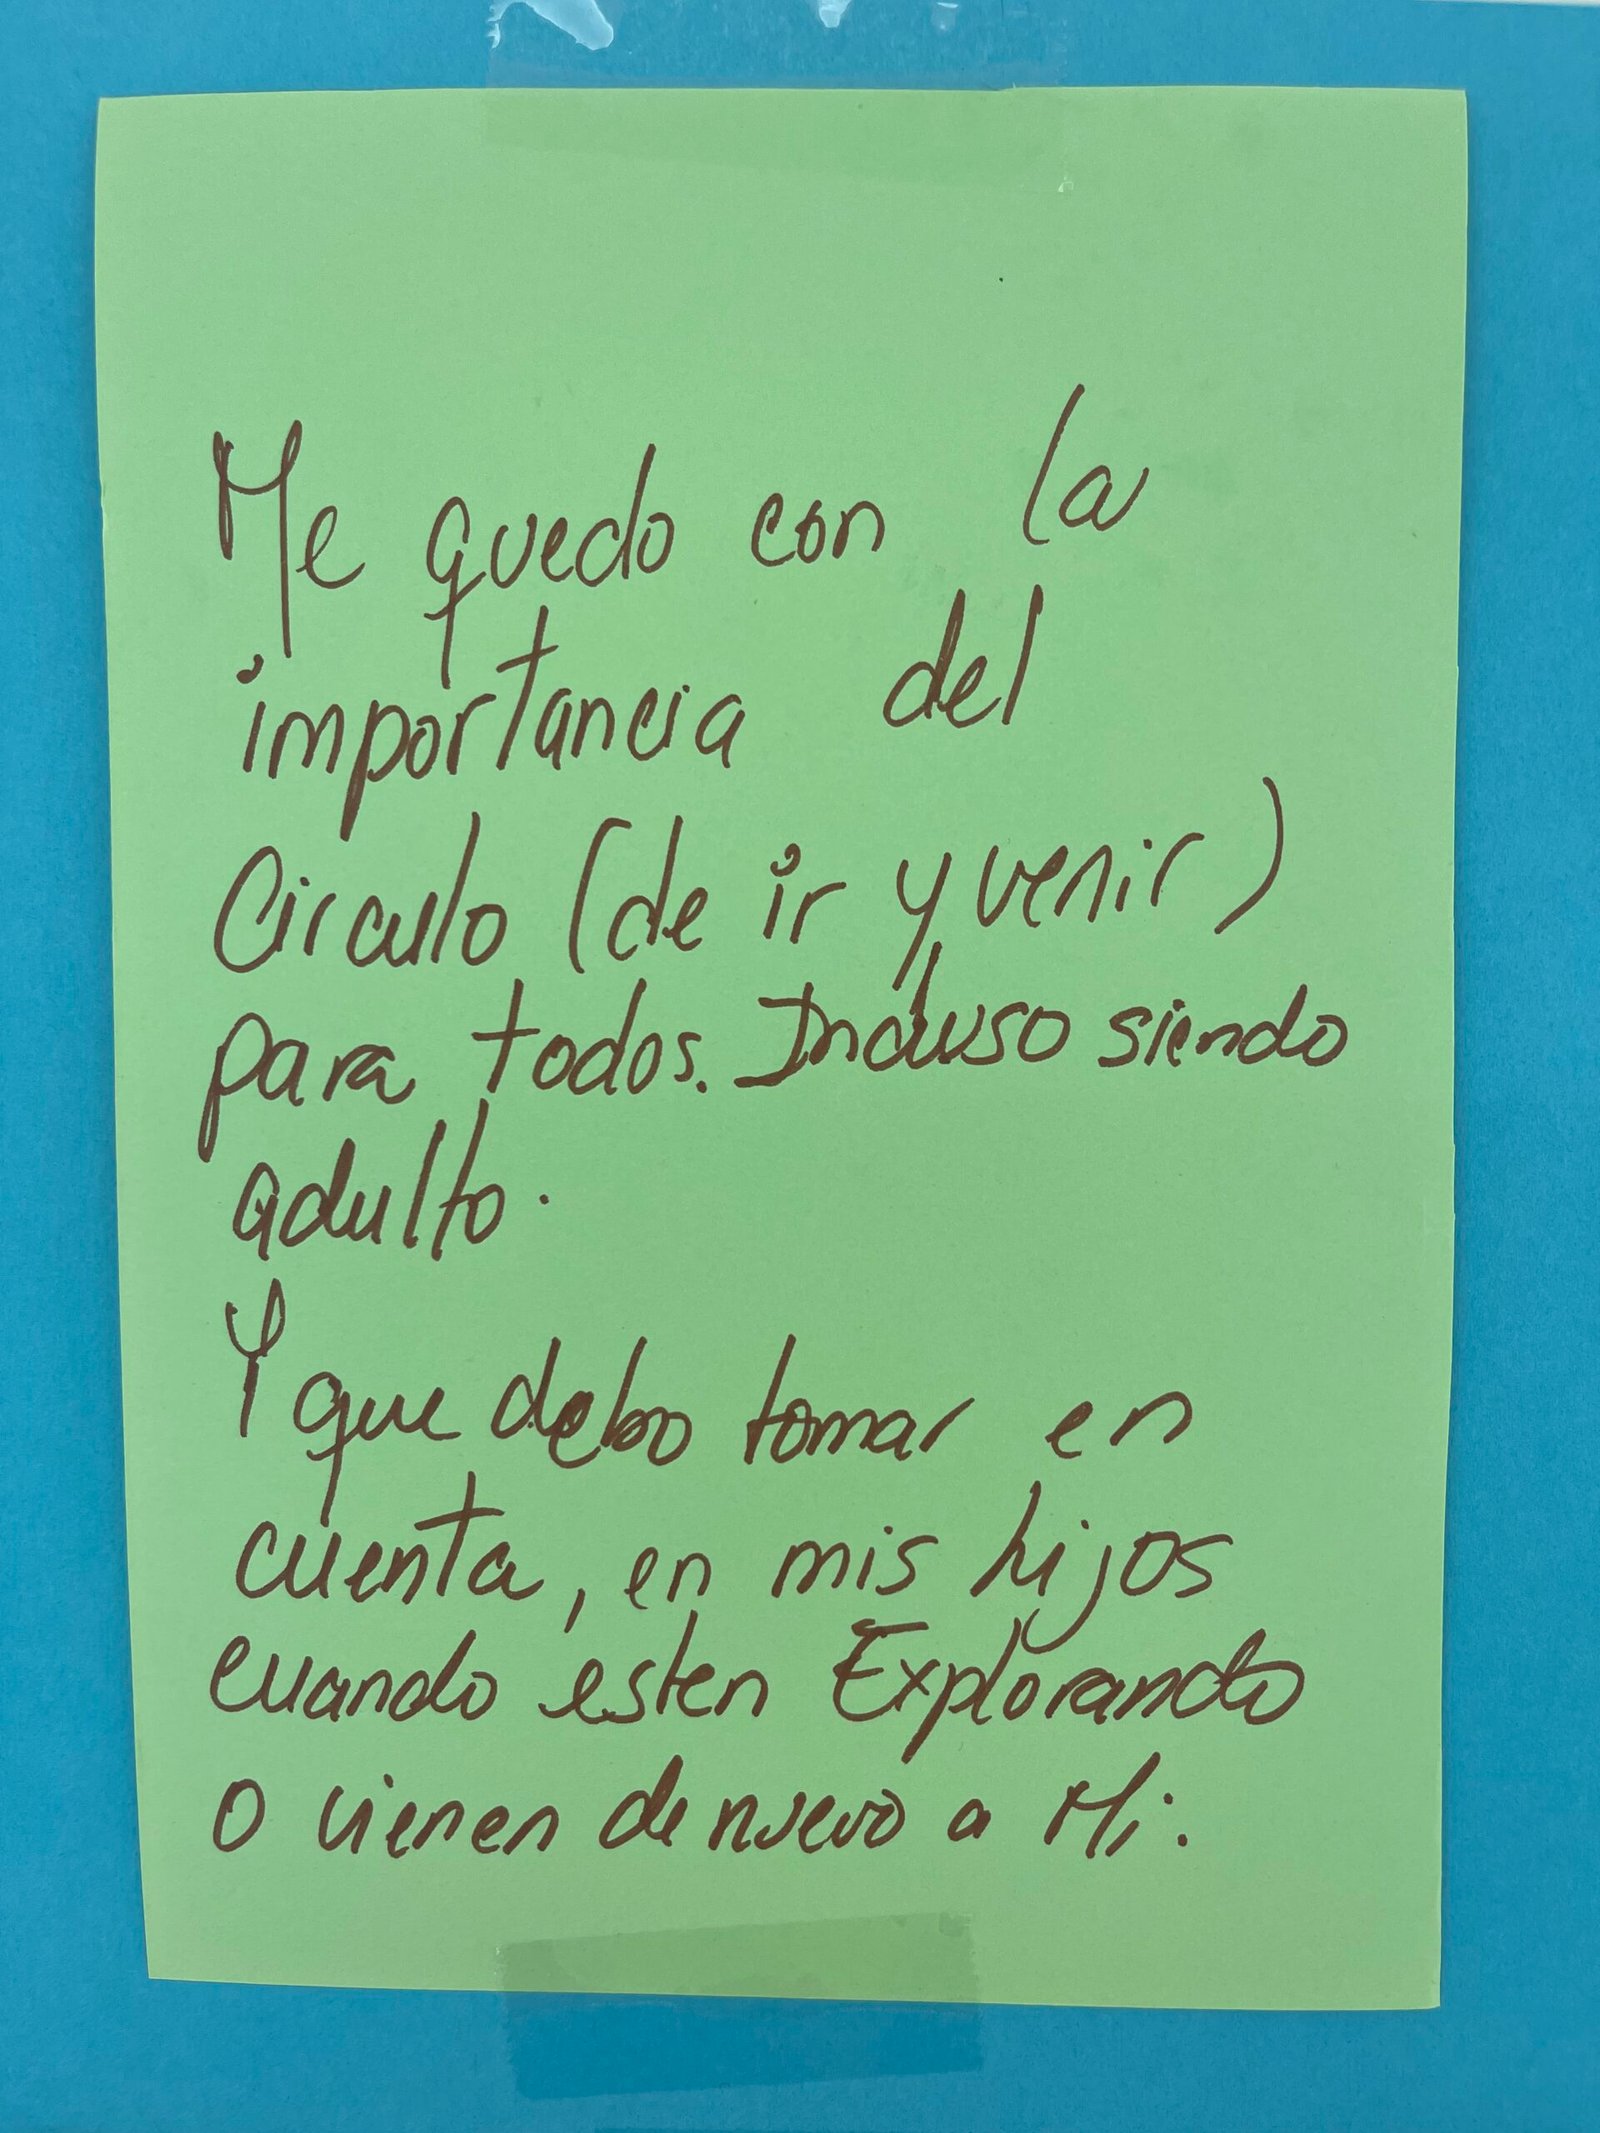 Me quedo con la
importancia del
Circulo (de ir y venir)
para todos. Incluso siendo
adulto.
Y que debo tomar en
cuenta, en mis hijos
cuando esten Explorando
o vienen de nuevo a Mi.